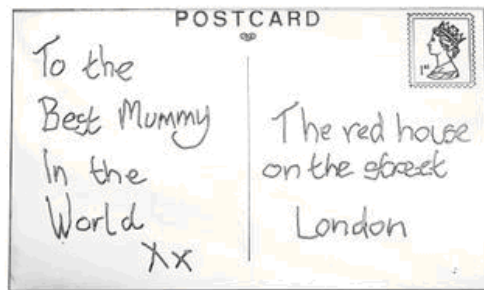 POSTCARD
1st
To the
Best Mummy
In the
World
xx
The red house
on the street
London